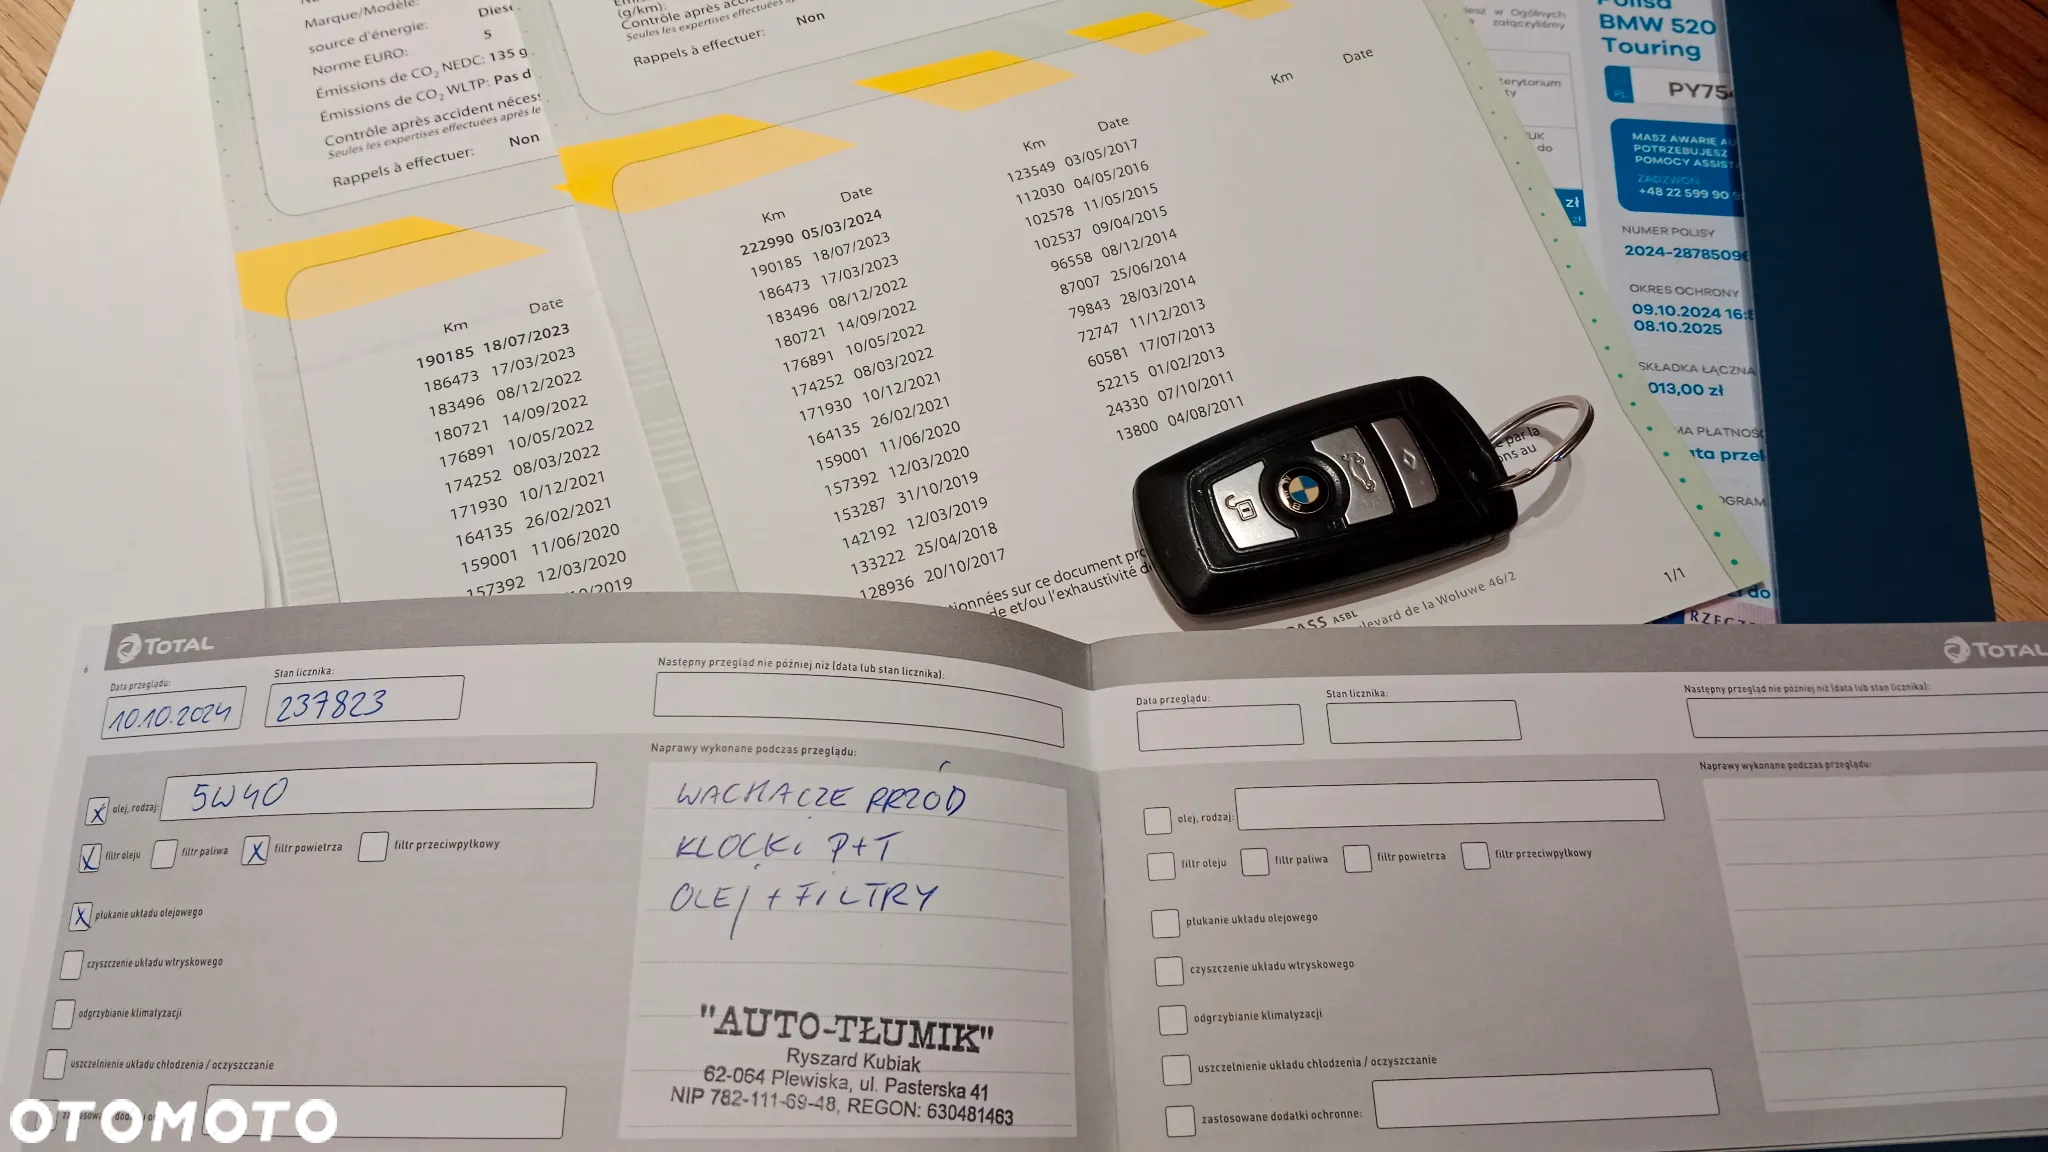 Marque/Modèle:
source d'énergie:
Norme EURO: 5
Émissions de CO2 NEDC: 135 g
Émissions de CO2 WLTP: Pas d
Contrôle après accident nécess
Seules les expertises effectuées après le
Rappels à effectuer: Non
Km Date
190185 18/07/2023
186473 17/03/2023
183496 08/12/2022
180721 14/09/2022
176891 10/05/2022
174252 08/03/2022
171930 10/12/2021
164135 26/02/2021
159001 11/06/2020
157392 12/03/2020
/2019
(g/km):
Contrôle après accid
Seules les expertises effectuées ap
Rappels à effectuer: Non
Km Date
222990 05/03/2024
190185 18/07/2023
186473 17/03/2023
183496 08/12/2022
180721 14/09/2022
176891 10/05/2022
174252 08/03/2022
171930 10/12/2021
164135 26/02/2021
159001 11/06/2020
157392 12/03/2020
153287 31/10/2019
142192 12/03/2019
133222 25/04/2018
128936 20/10/2017
Km Date
123549 03/05/2017
112030 04/05/2016
102578 11/05/2015
102537 09/04/2015
96558 08/12/2014
87007 25/06/2014
79843 28/03/2014
72747 11/12/2013
60581 17/07/2013
52215 01/02/2013
24330 07/10/2011
13800 04/08/2011
Km Date
ionnées sur ce document pro
de et/ou l'exhaustivité d
e par la
ons au
PASS ASBL
levard de la Woluwe 46/2
1/1
Polisa
BMW 520
Touring
PL PY754
MASZ AWARIĘ AU
POTRZEBUJESZ
POMOCY ASSIST
ZADZWOŃ
+48 22 599 90 9
NUMER POLISY
2024-2878509
OKRES OCHRONY
09.10.2024 16:
08.10.2025
SKŁADKA ŁĄCZNA
013,00 zł
MA PŁATNOŚ
ata przel
OGRAM
esz w Ogólnych
załączyliśmy
terytorium
ty
do
zł
zł
zł do
RZECZ
6
TOTAL
Data przeglądu: 10.10.2024
Stan licznika: 237823
Następny przegląd nie później niż (data lub stan licznika):
X olej, rodzaj: 5W40
X filtr oleju filtr paliwa X filtr powietrza filtr przeciwpyłkowy
X płukanie układu olejowego
czyszczenie układu wtryskowego
odgrzybianie klimatyzacji
uszczelnienie układu chłodzenia / oczyszczanie
Naprawy wykonane podczas przeglądu:
WACHACZE PRZÓD
KLOCKi P+T
OLEJ + FiLTRY
"AUTO-TŁUMIK"
Ryszard Kubiak
62-064 Plewiska, ul. Pasterska 41
NIP 782-111-69-48, REGON: 630481463
TOTAL
Data przeglądu:
Stan licznika:
Następny przegląd nie później niż (data lub stan licznika):
olej, rodzaj:
filtr oleju filtr paliwa filtr powietrza filtr przeciwpyłkowy
płukanie układu olejowego
czyszczenie układu wtryskowego
odgrzybianie klimatyzacji
uszczelnienie układu chłodzenia / oczyszczanie
zastosowane dodatki ochronne:
Naprawy wykonane podczas przeglądu:
OTOMOTO